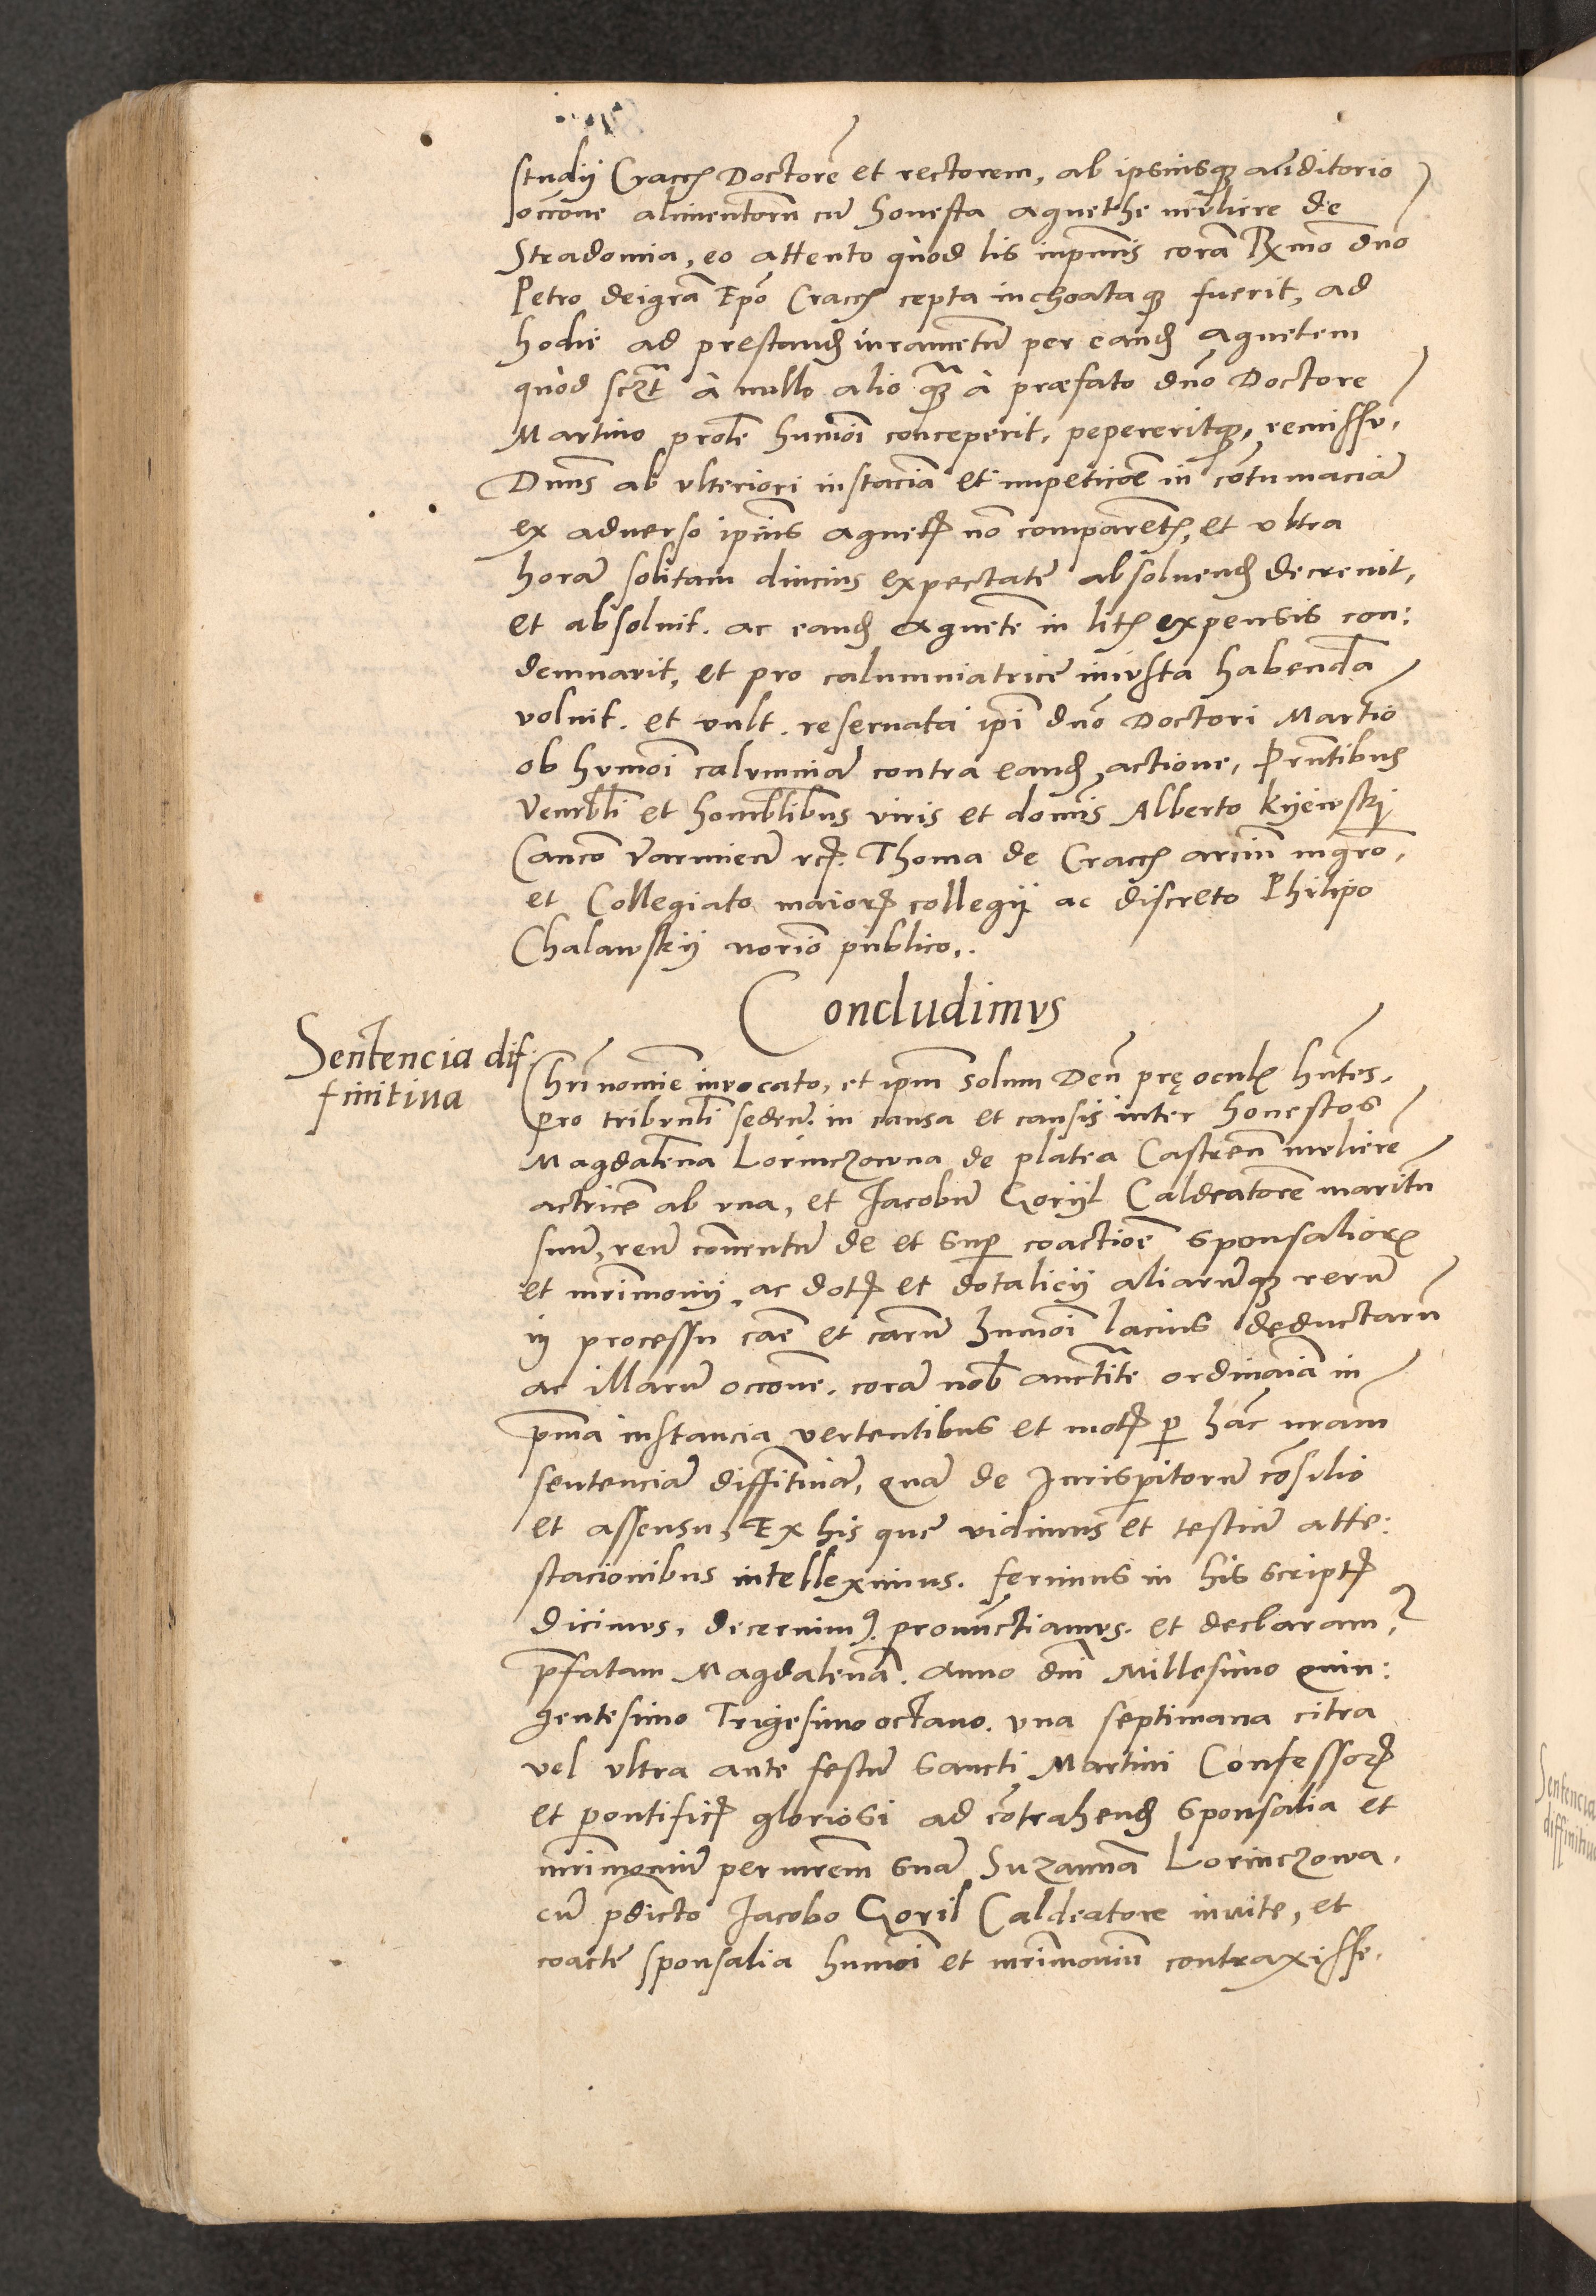 studij Craccꝭ Doctorē et rectorem, ab ipsiusqꝫ auditorio
occone alimentorū cū honesta Agnethe muliere de
Stradomia, eo attento quod lis inprimis corā Rx̄mo dn̄o
Petro deigrā Ep̄o Craccꝭ cepta inchoataqꝫ fuerit, ad
hodie ad prestandꝭ iuramētū per eandꝭ Agnetem
quod sczt̄ à nullo alio qꝫ à præfato dn̄o Doctore
Martino prolē humōi conceperit, pepereritqꝫ, remissu,
Dn̄us ab vlteriori instāciā et impeticōe in cōtumaciā
ex aduerso ipīus Agnetꝭ nō comparētꝭ, et vltra
horā solitam diucius expectatē absoluendꝭ decreuit,
et absoluit. ac eandꝭ Agnetē in litꝭ expensis con:
demnauit, et pro calumniatrice iniusta habendā
voluit. et vult. reseruata ip̄i dn̄o Doctori Martīo
ob humōi calumniā contra eandꝭ actione, Prn̄tibus
Venrb̄li et honorb̄libus viris et domīs Alberto Kyiewskij
Canco Varmieñ rcꝭ. Thoma de Craccꝭ arciū mgr̄o,
et Collegiato maiorꝭ collegij ac discreto Philipo
Chalawskij norīo publico,.
Concludimvs
Sentencia dif:
finitiua
Chrī nomīe inuocato, et ipm̄ Solum Deū prę oculꝭ hn̄tes.
pro tribunl̄i sedeñ. in causa et causis inter honestos
Magdalenā Lorinczowna de platea Castreñ mulierē
actricē ab vna, et Jacobū Goryl Caldeatorē maritū
suū, reū conuentū de et suꝑ coactiōe sponsaliorꝭ
et mr̄imonij, ac dotꝭ et dotalicij aliarūqꝫ rerū
in processu cāe et cārū humōi lacius deductarū
ac illarū occone. corā nob̄ auctt̄ate ordinaīa in
pm̄a instancia vertentibus et motꝭ ꝑ hāc nr̄am
sentenciā diffitiuā, quā de Jurisꝑitorū cōsilio
et assensu, Ex his que vidimus et testiū atte:
stacionibus intelleximus. ferimus in his scriptꝭ
dicimus, decernimꝰ. pronūctiamus. et declaramꝰ
p̄fatam Magdalenā. Anno dn̄i Millesimo quin:
gentesimo Trigesimo octauo. vna septimana citra
vel vltra ante festū Sancti Martini Confessorꝭ
et pontificꝭ gloriosi ad cōtrahendꝭ sponsalia et
mr̄imoniū per mr̄em suā Suzannā Lorinczowa.
cū p̄dicto Jacobo Goril Caldeatore inuite, et
coacte sponsalia humōi et mr̄imoniū contraxisse.
Sentencia
diffinitiu